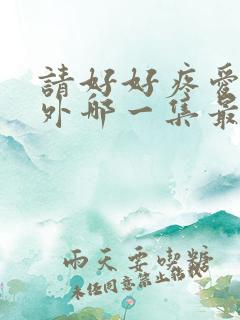 請好好疼愛
外那一集最
雨天要喫糖
未經同意禁止轉載